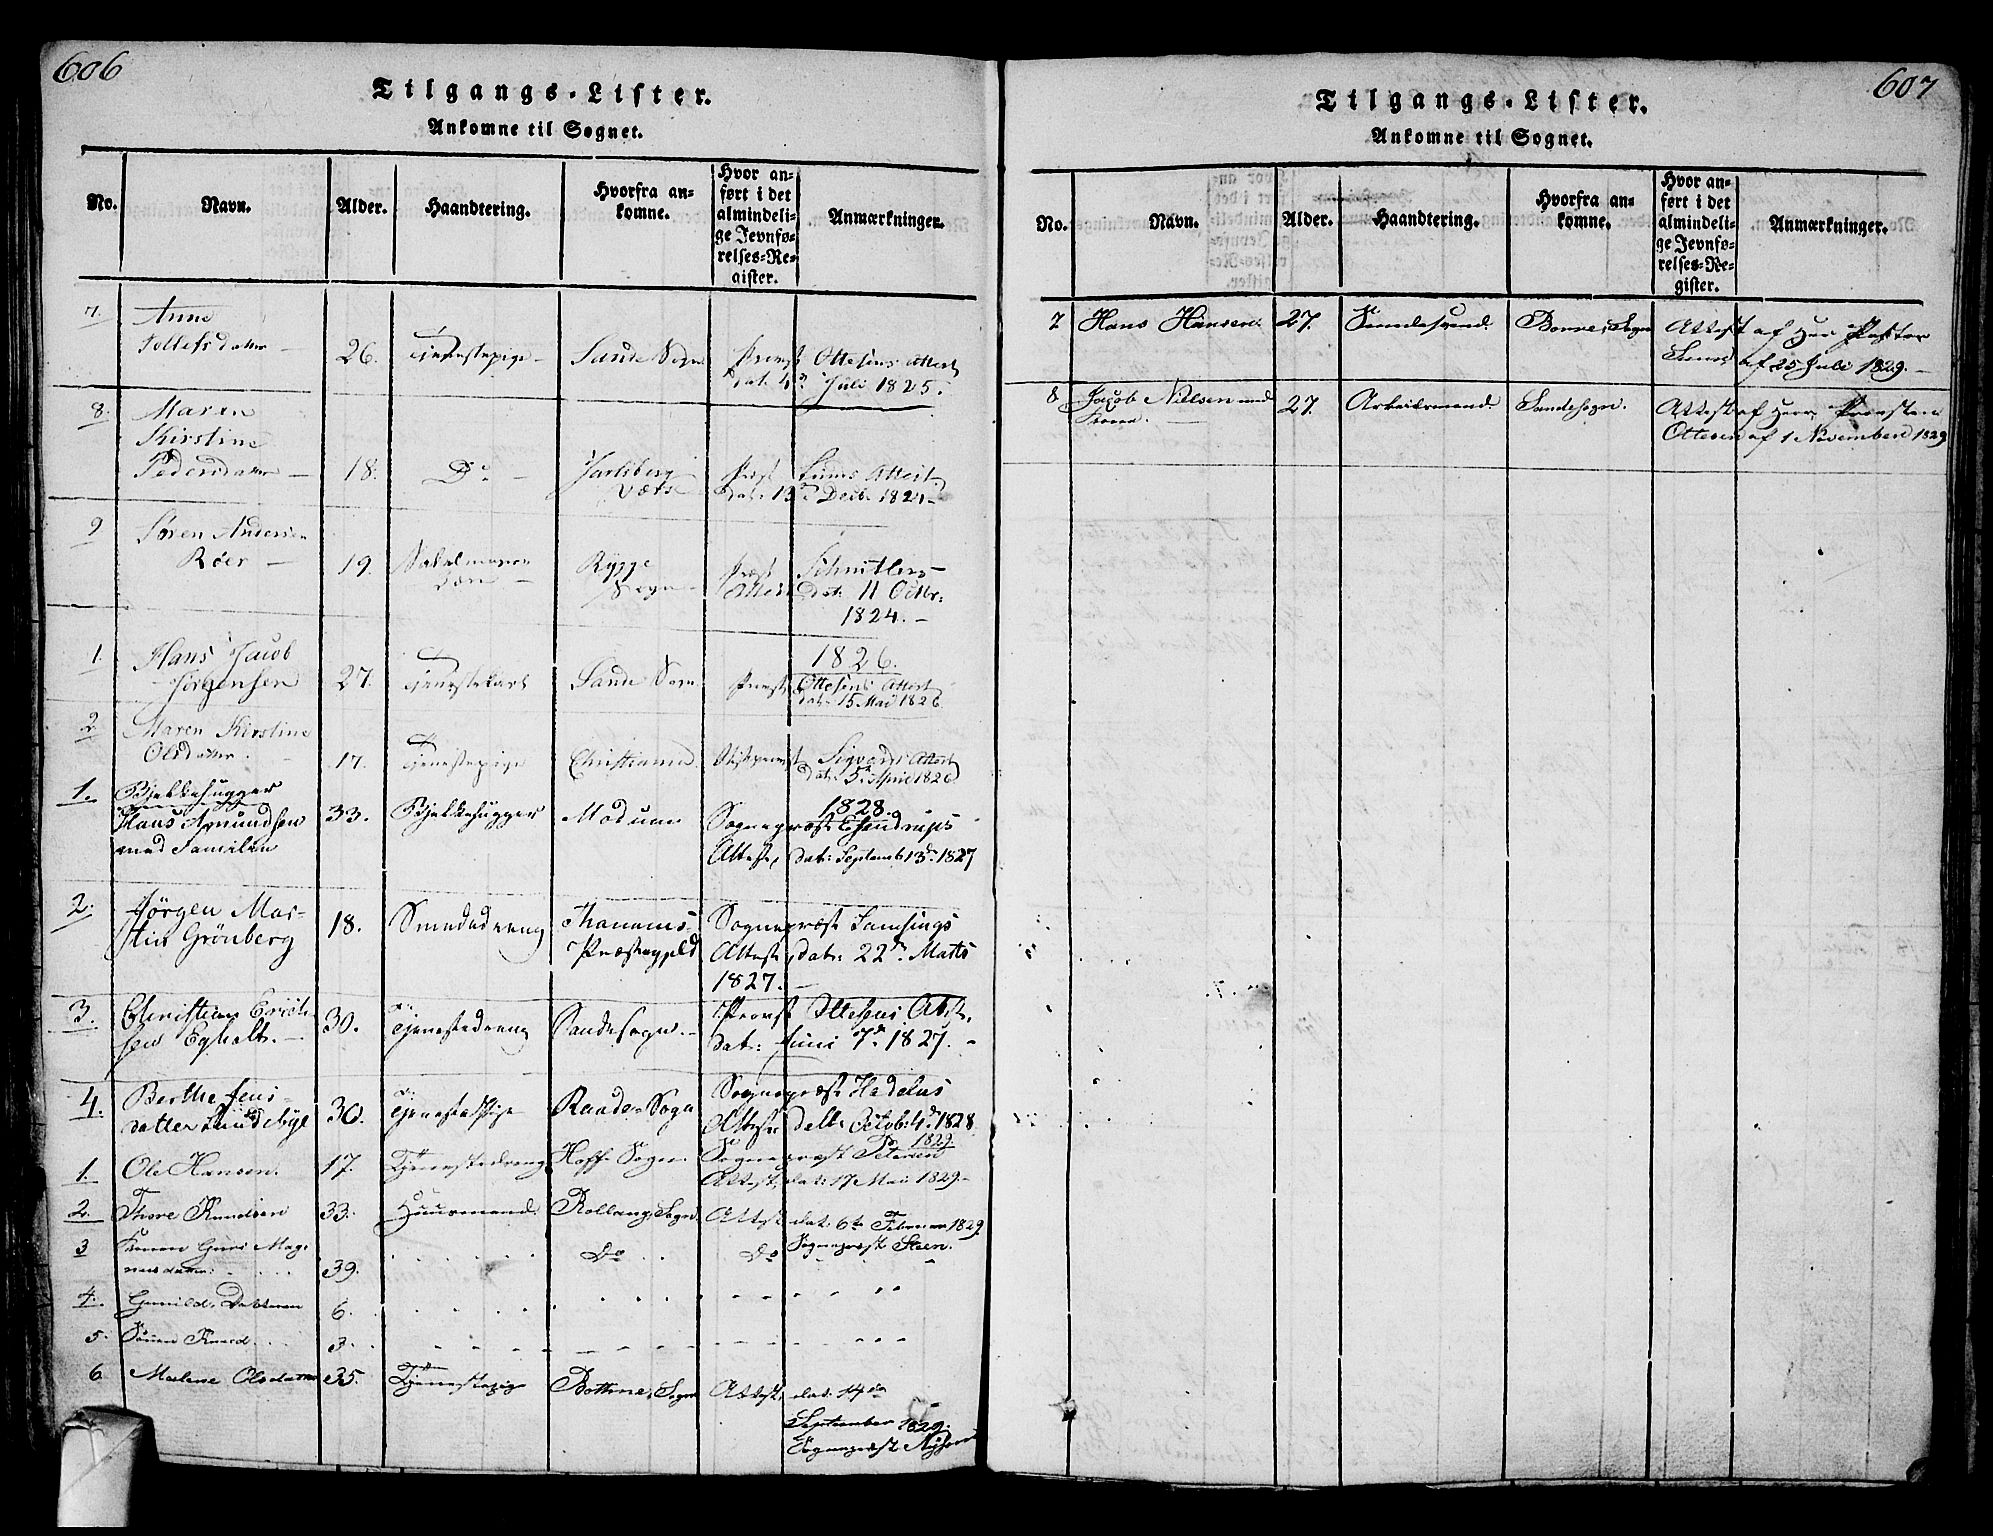 606
Tilgangs-Lister.
Ankomne til Sognet.
No. Navn. Alder. Haandtering. Hvorfra ankomne. Hvor anført i det almindelige Jevnførelses-Register. Anmærkninger.
7. Anne
Tollefsdatter 26. Tjenestepige Sande Sogn Provst Ottesens Attest
dat. 4de Juli 1825.
8. Maren
Kirstine
Pedersdatter 18. Do Jarlsberg Præst Attest
dat: 13de Decbr 1824
9 Søren Andersen
Röer 19. Rygge
Sogn Præst Schnitlers
Attest dat: 11 Octbr:
1824.
1826.
1. Hans Jacob
Jörgensen 27. Tjenestekarl Sande Sogn Provst Ottesens Attest
dat. 15 Mai 1826.
2 Maren Kirstine
Olsdatter. 17. Tjenestepige Christiania Stiftsprovst Sigvords Attest
dat. 5 April 1826
1828.
1. Bjelkehugger
Hans Amundsen
med Familien 33. Bjelkehugger Modum Sognepræst
Attest, dat: Septemb: 13de 1827
2. Jörgen Mar-
tin Grönberg 18. Smededreng
Præstegjeld Sognepræst
Attest, dat: 22de Marts
1827.
3. Christian Erich-
sen Egholt. 30. Tjenestedreng Sandesogn. Provst Ottesens Attst,
dat: Juni 7de 1827.
4. Berthe Jens-
datter Lundebye 30. Tjenestepige Raade Sogn Sognepræst
Attest Octob: 4de 1828.
1829.
1. Ole Hansen. 17. Tjenestedreng Hoff Sogn. Sognepræst Petersen
Attest, dat: 17 Mai 1829.
2. Thore Knudsen 33. Huusmand. Rollaug Sogn Attest dat. 6te Februar 1829.
Sognepræst Steen.
3 Konen Guri Mag-
nusdatter. 39. Do Do
4. Gunild, Datteren 6.
5. Sönnen Knud 3.
6 Malene Olsdatter 35. Tjenestepige Bottne, Sogn Attest, dat. 14de
September 1829.
Sognepræst
607
Tilgangs-Lister.
Ankomne til Sognet.
No. Navn. Alder. Haandtering. Hvorfra ankomne. Hvor anført i det almindelige Jevnførelses-Register. Anmærkninger.
7 Hans Hansen. 27. Sogn Attest af Herr Pastor
af 25 Juli 1829.
8 Jacob Nielsen med
Konen. 27. Arbeidsmand. Sandesogn. Attest af Herr Provsten
Ottesen af 1 November 1829